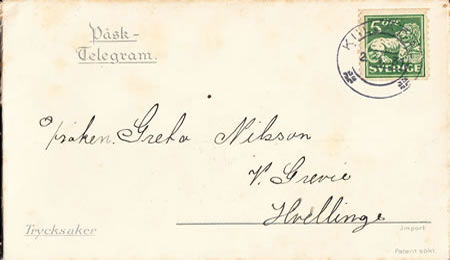 Påsk-
Telegram.
5 ÖRE
SVERIGE
Fröken. Greta Nilsson
V. Grevie
Hvellinge
Trycksaker
Import
Patent sökt.